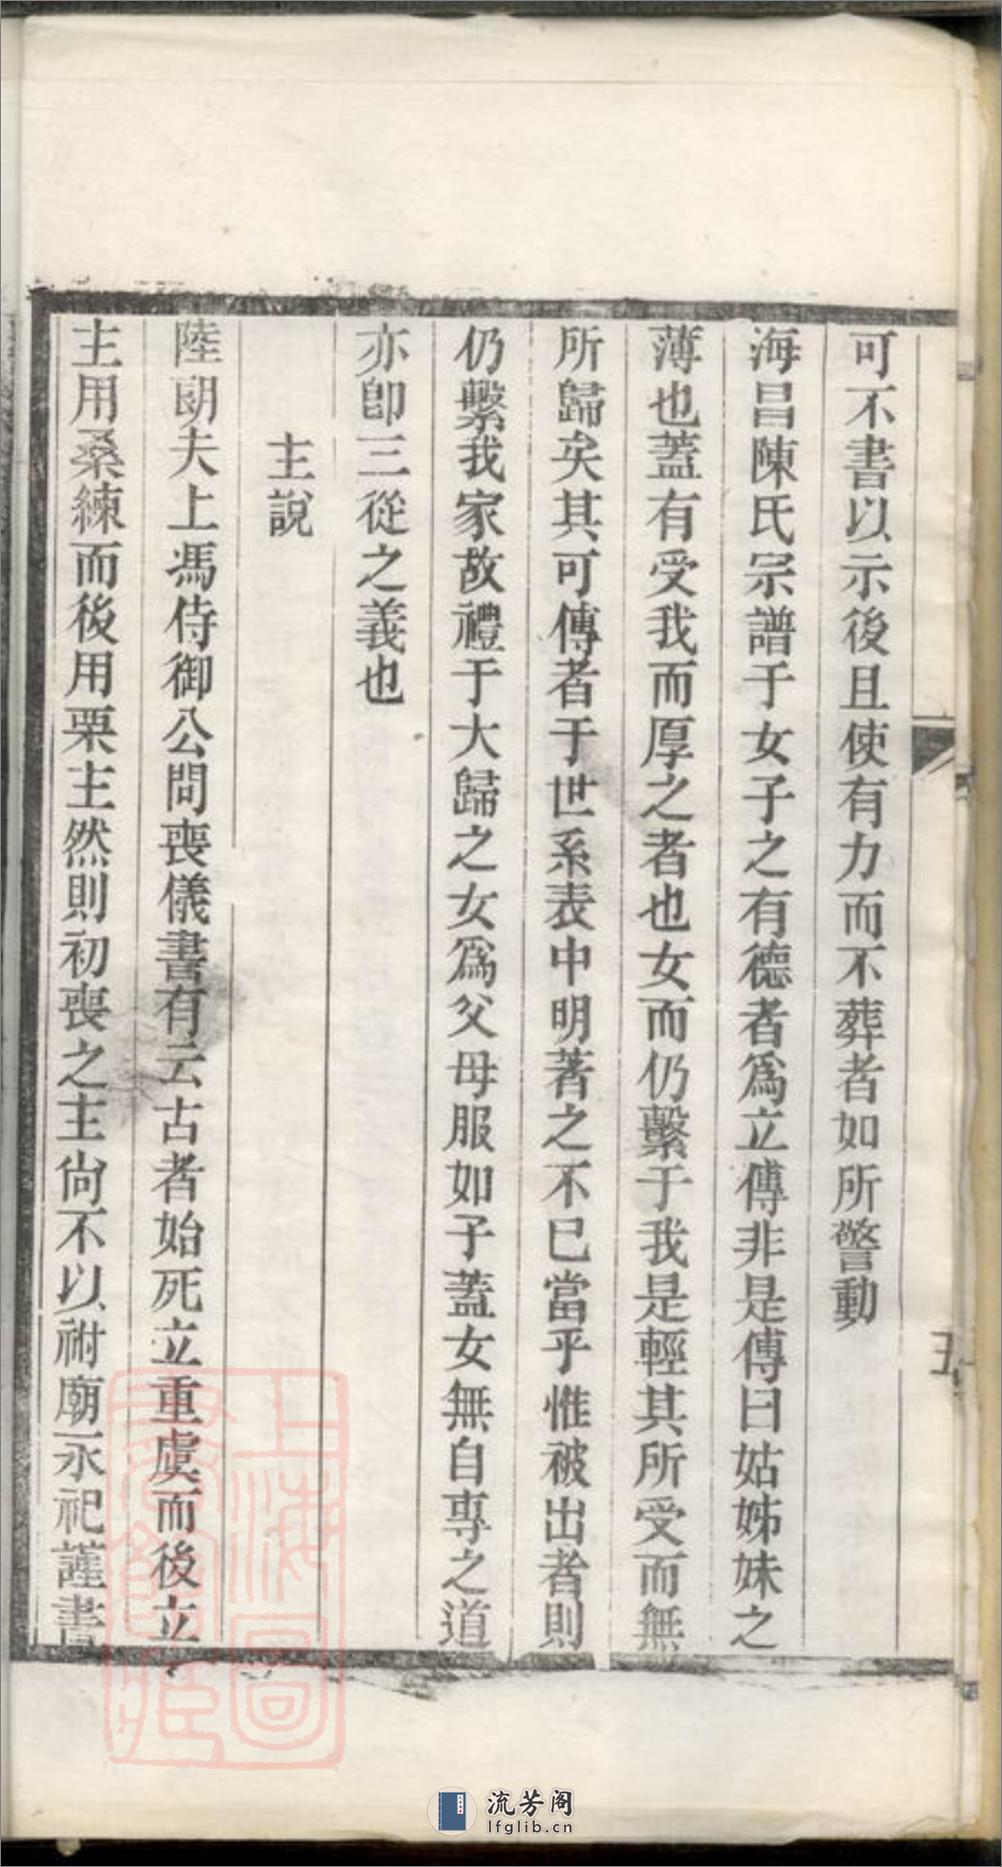 可不書以示後且使有力而不葬者如所警動
海昌陳氏宗譜于女子之有德者爲立傳非是傳曰姑姊妹之
薄也蓋有受我而厚之者也女而仍繫于我是輕其所受而無
所歸矣其可傳者于世系表中明著之不已當乎惟被出者則
仍繫我家故禮于大歸之女爲父母服如子蓋女無自專之道
亦卽三從之義也
主說
陸朗夫上馮侍御公問喪儀書有云古者始死立重虞而後立
主用桑練而後用栗主然則初喪之主尙不以祔廟永祀謹書
五
上海圖書館藏
流芳阁
lfglib.cn